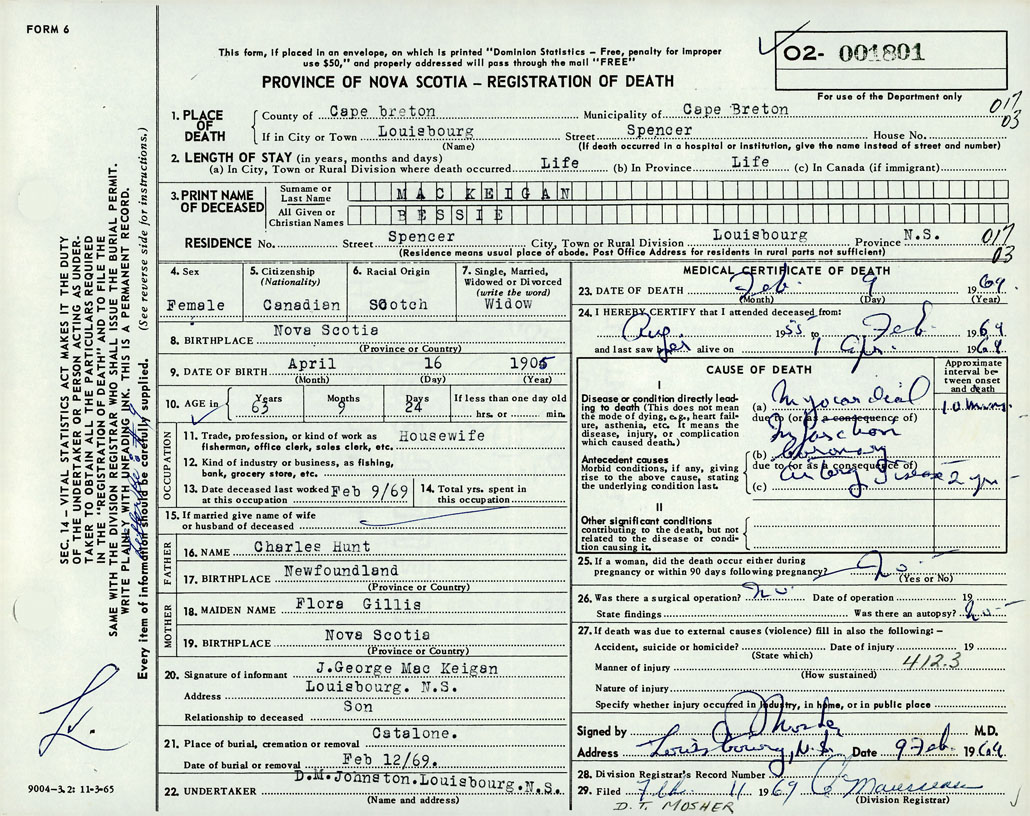 FORM 6
This form, if placed in an envelope, on which is printed "Dominion Statistics – Free, penalty for improper
use $50," and properly addressed will pass through the mail "FREE"
O2- 001801
PROVINCE OF NOVA SCOTIA – REGISTRATION OF DEATH
For use of the Department only
017
03
1. PLACE OF DEATH
County of Cape breton Municipality of Cape Breton
If in City or Town Louisbourg Street Spencer House No.
(Name) (If death occurred in a hospital or institution, give the name instead of street and number)
2. LENGTH OF STAY (in years, months and days)
(a) In City, Town or Rural Division where death occurred Life (b) In Province Life (c) In Canada (if immigrant)
3. PRINT NAME OF DECEASED
Surname or Last Name MAC KEIGAN
All Given or Christian Names BESSIE
RESIDENCE No. Street Spencer City, Town or Rural Division Louisbourg Province N.S.
(Residence means usual place of abode. Post Office Address for residents in rural parts not sufficient)
017
03
4. Sex
Female
5. Citizenship
(Nationality)
Canadian
6. Racial Origin
Scotch
7. Single, Married,
Widowed or Divorced
(write the word)
Widow
8. BIRTHPLACE Nova Scotia
(Province or Country)
9. DATE OF BIRTH April 16 1905
(Month) (Day) (Year)
10. AGE in Years Months Days If less than one day old
63 9 24 hrs. or min.
OCCUPATION
11. Trade, profession, or kind of work as Housewife
fisherman, office clerk, sales clerk, etc.
12. Kind of industry or business, as fishing,
bank, grocery store, etc.
13. Date deceased last worked Feb 9/69
at this occupation
14. Total yrs. spent in
this occupation
15. If married give name of wife
or husband of deceased
FATHER
16. NAME Charles Hunt
17. BIRTHPLACE Newfoundland
(Province or Country)
MOTHER
18. MAIDEN NAME Flora Gillis
19. BIRTHPLACE Nova Scotia
(Province or Country)
20. Signature of informant J.George Mac Keigan
Address Louisbourg. N.S.
Relationship to deceased Son
21. Place of burial, cremation or removal Catalone.
Date of burial or removal Feb 12/69.
22. UNDERTAKER D.M.Johnston.Louisbourg.N.S.
(Name and address)
MEDICAL CERTIFICATE OF DEATH
23. DATE OF DEATH Feb. 9 1969
(Month) (Day) (Year)
24. I HEREBY CERTIFY that I attended deceased from:
Aug 1955 to Feb. 1969
and last saw alive on 1969
CAUSE OF DEATH
Approximate
interval be-
tween onset
and death
I
Disease or condition directly lead-
ing to death (This does not mean
the mode of dying, e.g., heart fail-
ure, asthenia, etc. It means the
disease, injury, or complication
which caused death.)
(a) Myocardial
due to (or as a consequence of)
Infarction
Antecedent causes
Morbid conditions, if any, giving
rise to the above cause, stating
the underlying condition last.
(b) Coronary
due to (or as a consequence of)
(c) Artery Disease 2 yrs
II
Other significant conditions
contributing to the death, but not
related to the disease or condi-
tion causing it.
25. If a woman, did the death occur either during
pregnancy or within 90 days following pregnancy? No
(Yes or No)
26. Was there a surgical operation? No Date of operation 19
State findings Was there an autopsy? No
27. If death was due to external causes (violence) fill in also the following: –
Accident, suicide or homicide? Date of injury 19
(State which)
412.3
Manner of injury
(How sustained)
Nature of injury
Specify whether injury occurred in industry, in home, or in public place
Signed by Mosher M.D.
Address Louisbourg, N.S. Date 9 Feb. 1969
28. Division Registrar's Record Number
29. Filed Feb. 11 1969
(Division Registrar)
D. T. MOSHER
SEC. 14 – VITAL STATISTICS ACT MAKES IT THE DUTY
OF THE UNDERTAKER OR PERSON ACTING AS UNDER-
TAKER TO OBTAIN ALL THE PARTICULARS REQUIRED
IN THE "REGISTRATION OF DEATH" AND TO FILE THE
SAME WITH THE DIVISION REGISTRAR WHO SHALL ISSUE THE BURIAL PERMIT.
WRITE PLAINLY WITH UNFADING INK. THIS IS A PERMANENT RECORD.
Every item of information should be carefully supplied. (See reverse side for instructions.)
9004-3.2: 11-3-65